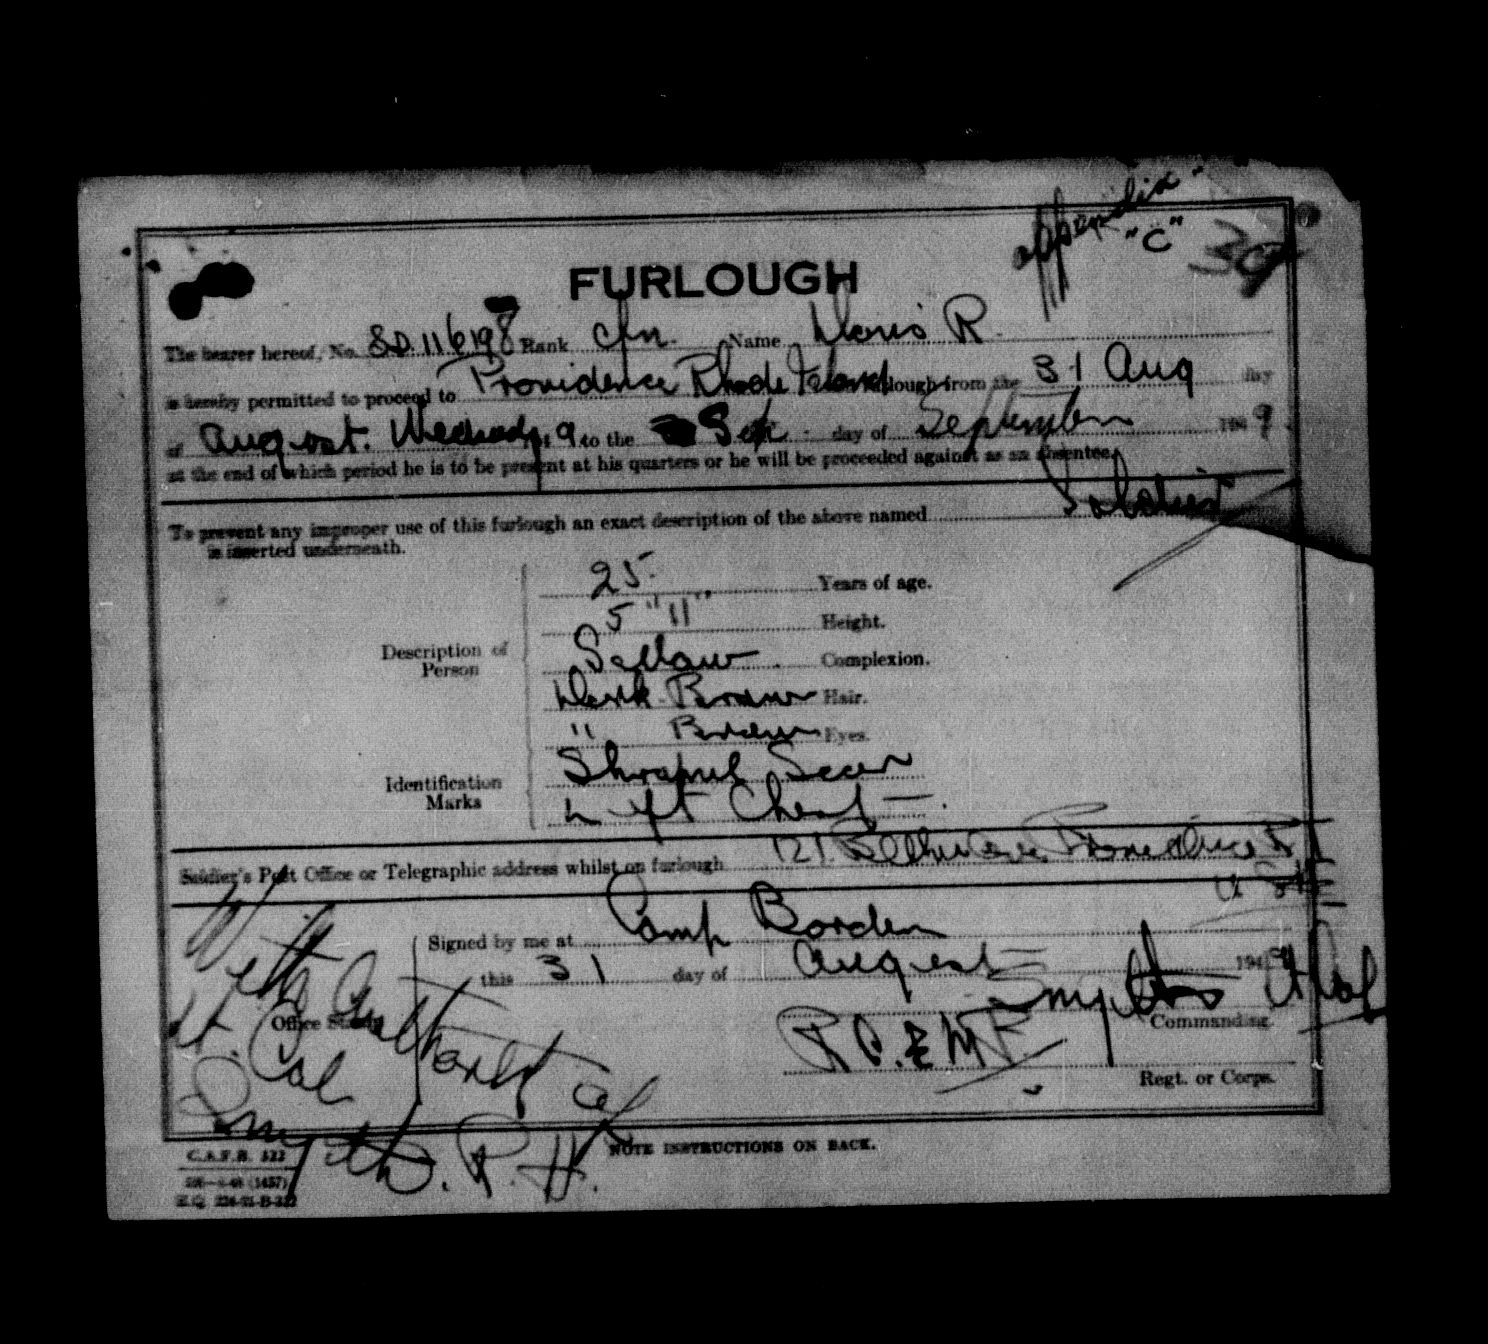 appendix
"C"
39
FURLOUGH
The bearer hereof, No. SD.116198 Rank Cfn. Name Davis R.
is hereby permitted to proceed to Providence Rhode Island furlough from the 31 Aug day
of August. 49 to the Sept. day of September 1949
at the end of which period he is to be present at his quarters or he will be proceeded against as an absentee.
To prevent any improper use of this furlough an exact description of the above named
is inserted underneath.
25 Years of age.
5 "11" Height.
Description of
Person
Sallow Complexion.
Dark Brown Hair.
" Brown Eyes.
Identification
Marks
Shrapnel Scar
Left Chest
Soldier's Post Office or Telegraphic address whilst on furlough 121 Providence R I
U S
Signed by me at Camp Borden
this 31 day of August 1949
Smythe
Commanding.
Regt. or Corps.
Office Stamp
Lt. Col
Smyth. P. H.
NOTE INSTRUCTIONS ON BACK.
C.A.F.B. 322